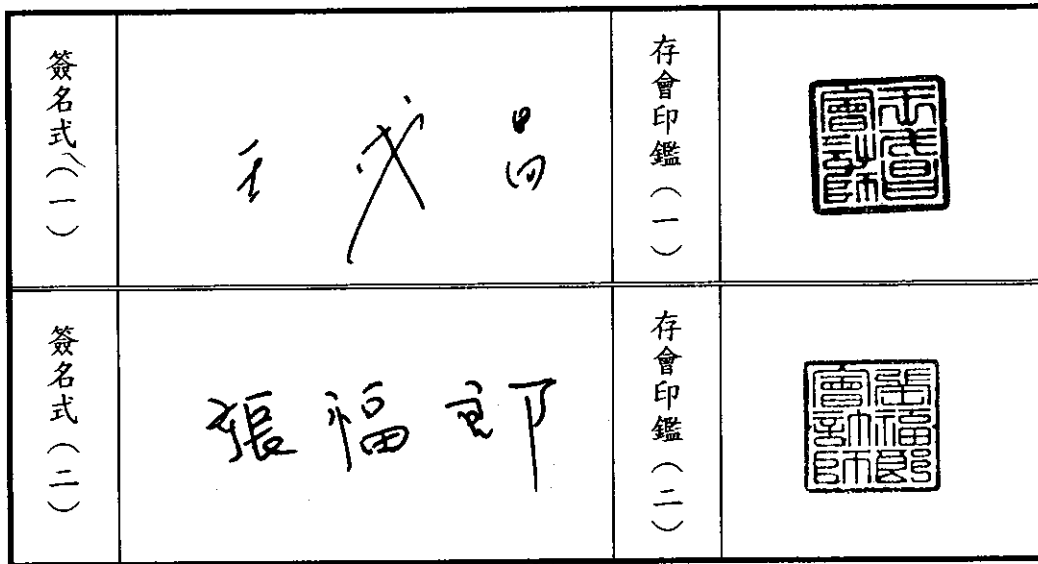 簽名式(一)
王戊昌
存會印鑑(一)
王戊昌
會計師
簽名式(二)
張福郎
存會印鑑(二)
張福郎
會計師